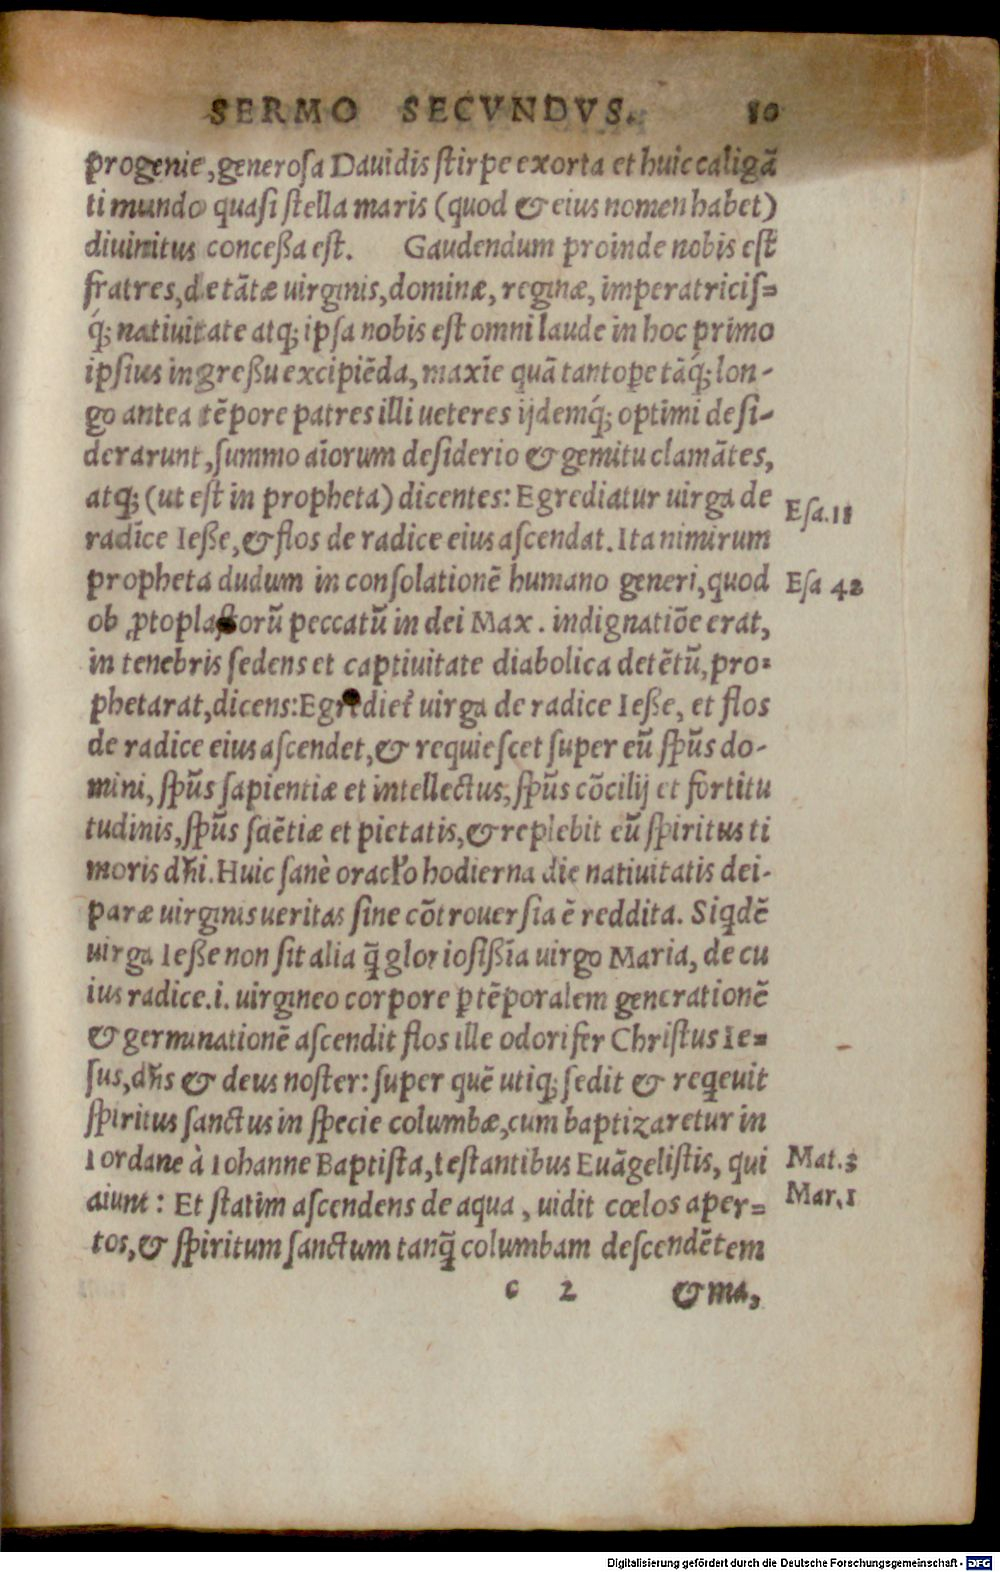 SERMO SECVNDVS. 80
progenie, generosa Dauidis stirpe exorta et huic caligā
ti mundo quasi stella maris (quod & eius nomen habet)
diuinitus conceßa est. Gaudendum proinde nobis est
fratres, de tātæ uirginis, dominæ, reginæ, imperatricis=
q́; natiuitate atq; ipsa nobis est omni laude in hoc primo
ipsius ingreßu excipiēda, maxīe quā tantoꝑe tāq́; lon-
go antea tēpore patres illi ueteres ijdemq́; optimi desi-
derarunt, summo aīorum desiderio & gemitu clamātes,
atq; (ut est in propheta) dicentes: Egrediatur uirga de
Esa. 11
radice Ieße, & flos de radice eius ascendat. Ita nimirum
propheta dudum in consolationē humano generi, quod
Esa 42
ob ꝓtoplastorū peccatū in dei Max. indignatiōe erat,
in tenebris sedens et captiuitate diabolica detētū, pro=
phetarat, dicens: Egredieť uirga de radice Ieße, et flos
de radice eius ascendet, & requiescet super eū sp̄us do-
mini, sp̄us sapientiæ et intellectus, sp̄us cōcilij et fortitu
tudinis, sp̄us sciētiæ et pietatis, & replebit eū spiritus ti
moris dn̄i. Huic sanè oracľo hodierna die natiuitatis dei-
paræ uirginis ueritas sine cōtrouersia ē reddita. Siqdē
uirga Ieße non sit alia q̄ gloriosißīa uirgo Maria, de cu
ius radice .i. uirgineo corpore ꝑ tēporalem generationē
& germinationē ascendit flos ille odorifer Christus Ie=
sus, dn̄s & deus noster: super quē utiq; sedit & reqeuit
spiritus sanctus in specie columbæ, cum baptizaretur in
Iordane à Iohanne Baptista, testantibus Euāgelistis, qui
Mat. 3
aiunt: Et statim ascendens de aqua, uidit cœlos aper=
Mar. 1
tos, & spiritum sanctum tanq̄ columbam descendētem
c 2 & ma,
Digitalisierung gefördert durch die Deutsche Forschungsgemeinschaft - DFG